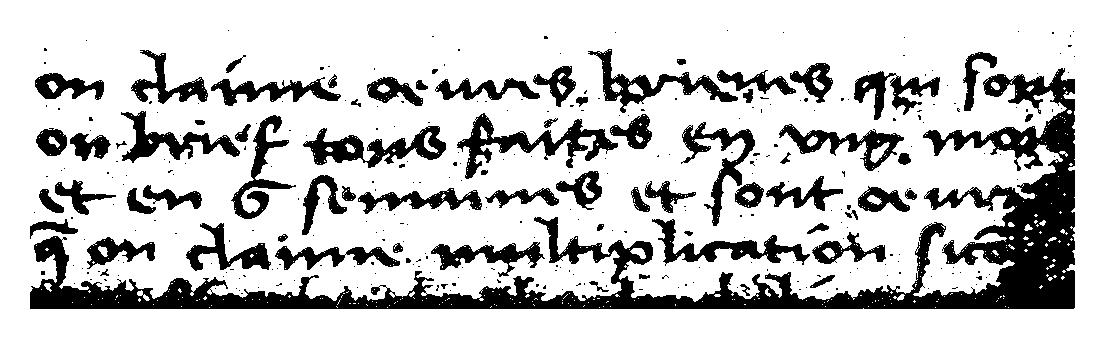 on claime oeuvres brieues qui sont
on brief tous faites en vng. mois
et en 6 semaines et sont oeuvre
q̄ on claime multiplication sicō